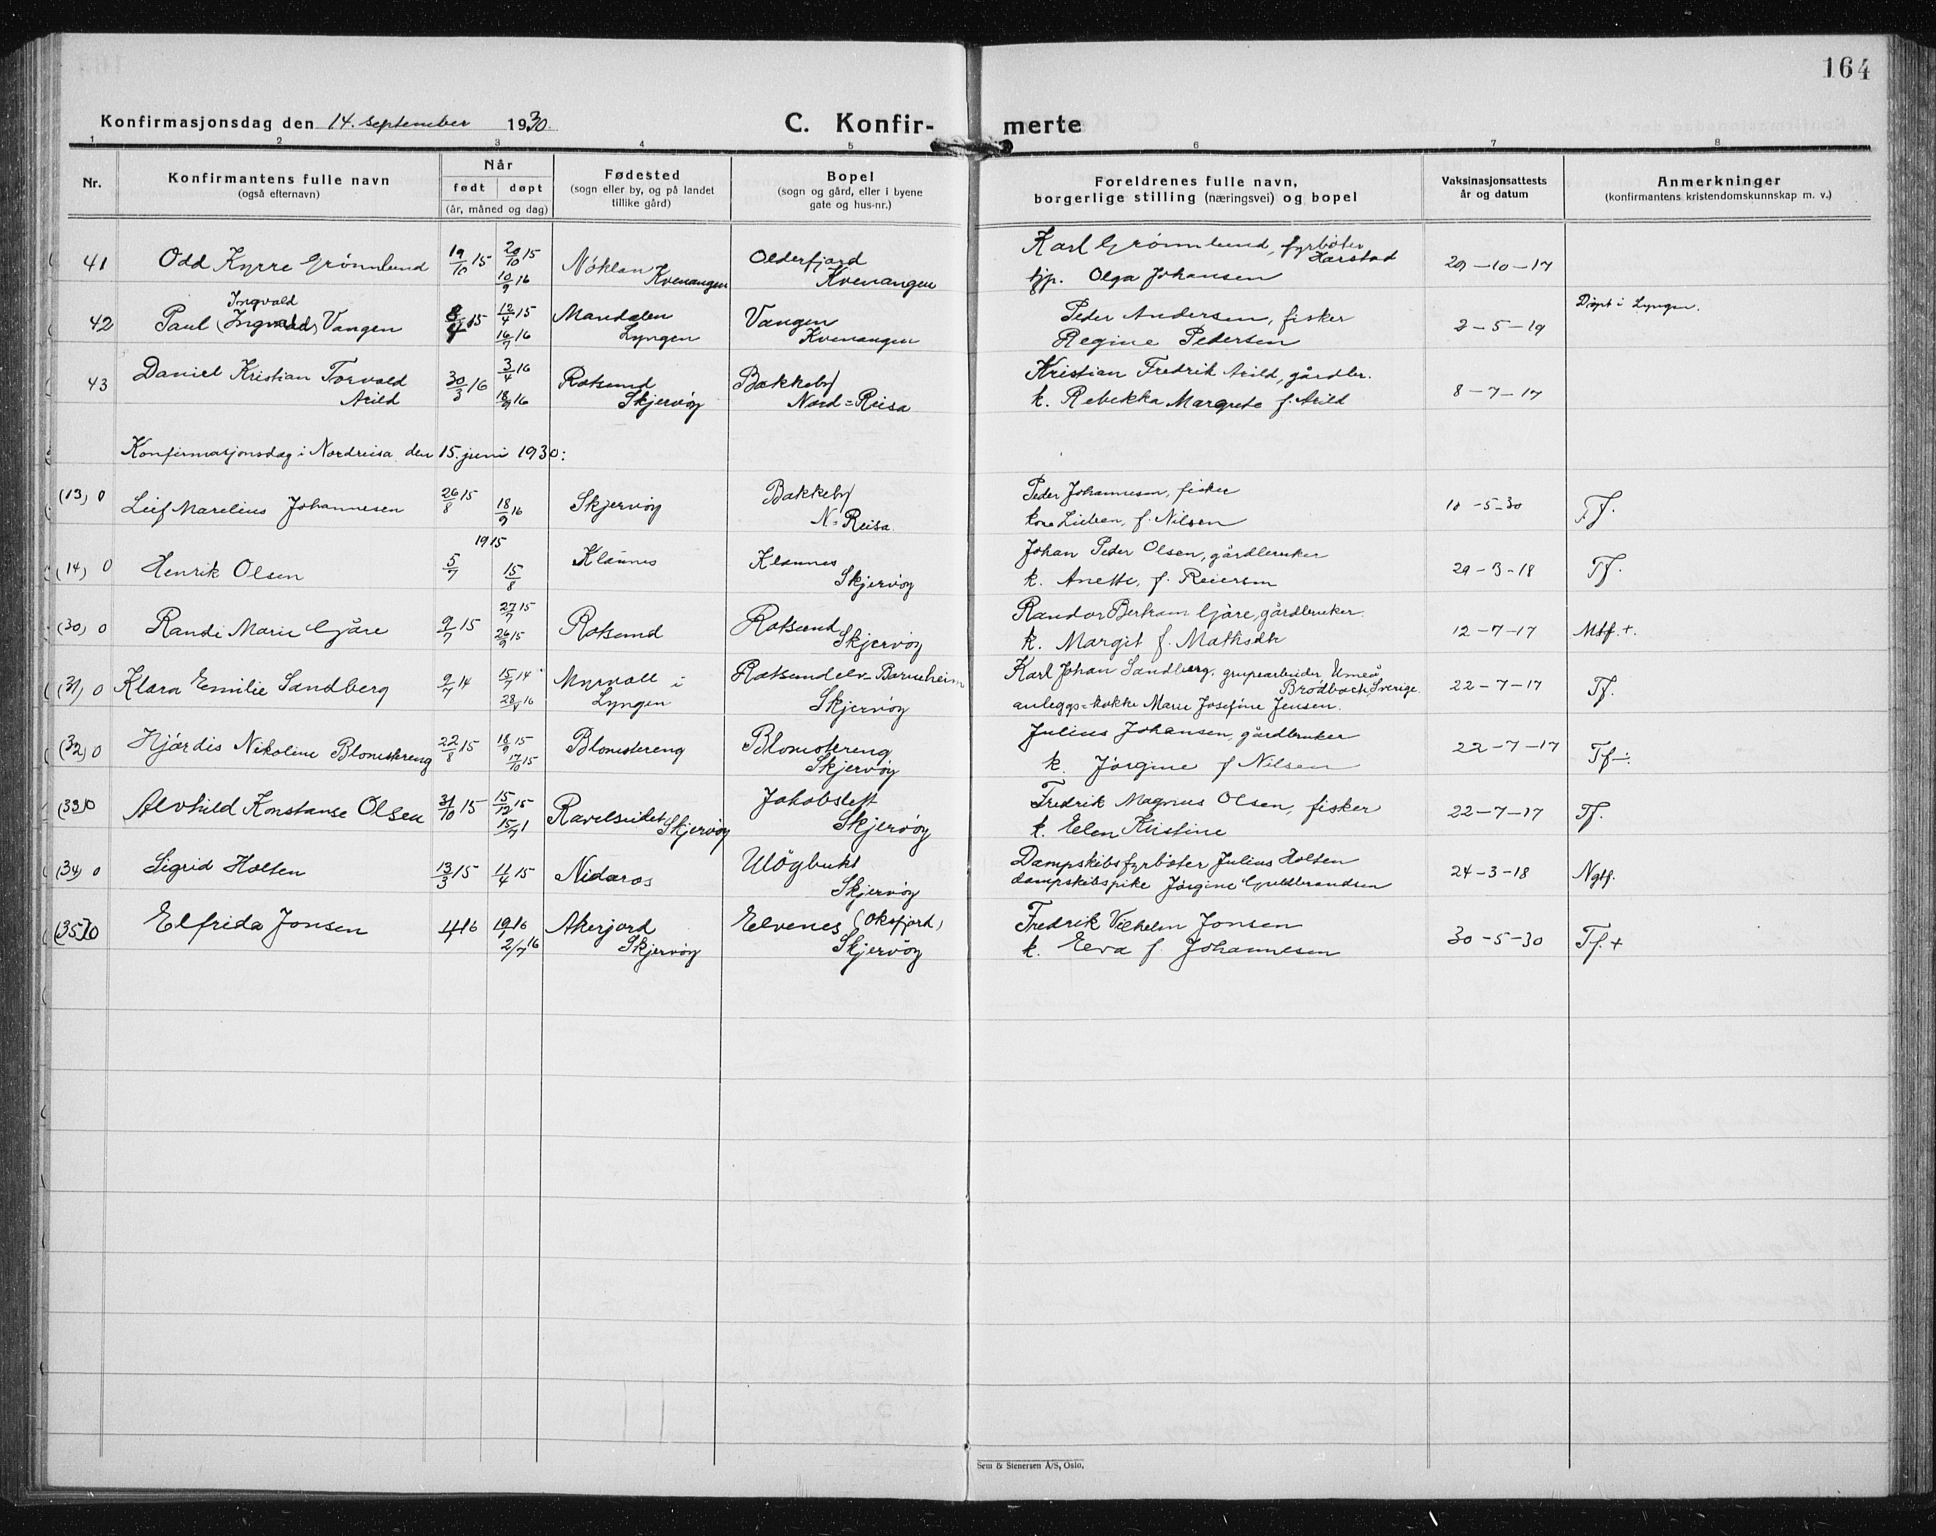 164
Konfirmasjonsdag den 14. september 1930.
C. Konfir- merte
1 2 3 4 5 6 7 8
Nr.
Konfirmantens fulle navn
(også efternavn)
Når
født døpt
(år, måned og dag)
Fødested
(sogn eller by, og på landet
tillike gård)
Bopel
(sogn og gård, eller i byene
gate og hus-nr.)
Foreldrenes fulle navn,
borgerlige stilling (næringsvei) og bopel
Vaksinasjonsattests
år og datum
Anmerkninger
(konfirmantens kristendomskunnskap m. v.)
41 Odd Kyrre Grønnlund 19/10 15 29/10 15 10/9 16 Nöklan Kvenangen Olderfjord Kvenangen
Karl Grønnlund, fyrbøter Harstad
tjp. Olga Johansen 29-10-17
42 Paul (Ingvald) Vangen Ingvald 15 12/4 15 16/7 16 Mandalen Lyngen Vangen Kvenangen
Peder Andersen, fisker
Regine Pedersen 2-5-19 Døpt i Lyngen.
43 Daniel Kristian Torvald Arild 30/3 16 3/4 16 16 Rotsund Skjervöy Bakkeby Nord=Reisa
Kristian Fredrik Arild, gårdbr.
k. Rebekka Margrete f. Arild 8-7-17
Konfirmasjonsdag i Nordreisa den 15. juni 1930:
(13) 0 Leif Marelius Johannesen 26/8 15 18/9 16 Skjervöy Bakkeby N=Reisa
Peder Johannesen, fisker
kone f. Nilsen 10-5-30 Tf.
(14) 0 Henrik Olsen 5/7 1915 15/8 Klaunes Klaunes Skjervöy
Johan Peder Olsen, gårdbruker
k. Anette, f. Reiersen 29-3-18 Tf.
(30) 0 Randi Marie Gjåre 9/7 15 27/7 15 26/9 15 Rotsund Rotsund Skjervöy
Randor Bertram Gjåre, gårdbruker.
k. Margit f. Mathsdtr 12-7-17 Mtf.+.
(31) 0 Klara Emilie Sandberg 9/7 14 15/7 14 16 Myrvoll i Lyngen Rotsundelv- Skjervöy
Karl Johan Sandberg, grupearbeider, Umeå
Sverige.
anleggs=kokke Marie Josefine Jensen. 22-7-17 Tf.
(32) 0 Hjørdis Nikoline Blomstereng 22/8 15 18/9 15 17/10 15 Blomstereng Blomstereng Skjervöy
Julius Johansen, gårdbruker
k. Jörgine f Nilsen 22-7-17 Tf-:
(33) 0 Alvhild Konstanse Olsen 31/10 15 15/12 15 Ravelseidet Skjervöy Jakobslett Skjervöy
Fredrik Magnus Olsen, fisker
k. Elen Kristine 22-7-17 Tf.
(34) 0 Sigrid Holten 13/3 15 11/4 15 Nidaros Ulögbukt Skjervöy
Dampskibsfyrbøter Julius Holten
dampskibspike Jørgine Guldbrandsen 24-3-18 Ngtf.
(35) 0 Elfrida Jonsen 16 16 2/7 16 Akerjord Skjervöy Elvenes (Oksfjord) Skjervöy
Fredrik Vilhelm Jonsen
k. Elva f. Johannesen 30-5-30 Tf.+
Sem & Stenersen A/S, Oslo.